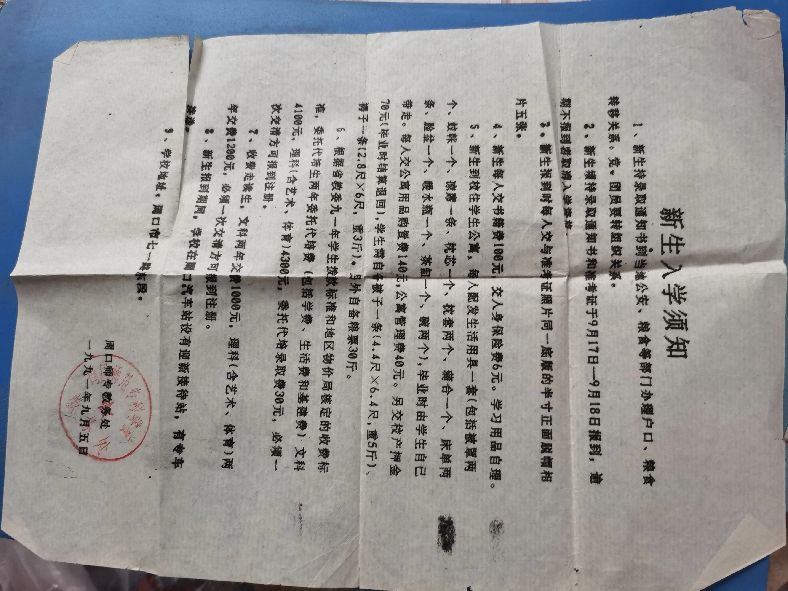 新生入学须知
1、新生持录取通知书到当地公安、粮食等部门办理户口、粮食
转移关系。党、团员要转组织关系。
2、新生须持录取通知书和准考证于9月17日—9月18日报到，逾
期不报到者取消入学资格。
3。新生报到时每人交与准考证照片同一底版的半寸正面脱帽相
片五张。
4、新生每人交书籍费100元，交人身保险费6元。学习用品自理。
5、新生到校住学生公寓，每人配发生活用具一套(包括被罩两
个、蚊帐一个、凉席一条、枕芯一个、枕套两个、床单两
条、脸盆一个、暖水瓶一个、茶缸一个、碗两个)，毕业时由学生自己
带走。每人交公寓用品购置费140元，公寓管理费40元。另交校产押金
70元(毕业时结算退回)，学生需自备被子一条(4.4尺×6.4尺，重5斤)、
褥子一条(2.8尺×6尺，重3斤)。另外自备粮票30斤。
6、根据省教委九一年学生拨款标准和地区物价局核定的收费标
准，委托代培生两年委托代培费(包括学费、生活费和基建费)文科
4100元，理科(含艺术、体育)4300元，委托代培录取费30元，必须一
次交清方可报到注册。
7、收费走读生，文科两年交费1000元，理科(含艺术、体育)两
年交费1200元，必须一次交清方可报到注册。
8、新生报到期间，学校在周口汽车站设有迎新接待站，有专车
接送。
9、学校地址：周口市七一路东段。
周口师专教务处
一九九一年九月五日